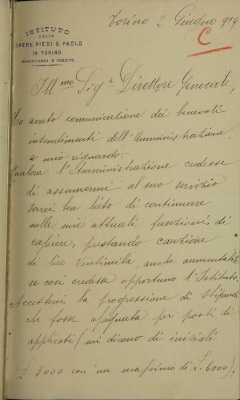 Torino 2 Giugno 1919
C
ISTITUTO
DELLE
OPERE PIE DI S. PAOLO
IN TORINO
BENEFICENZA E CREDITO
Ill.mo Sig.r Direttore Generale,
Ho avuto comunicazione dei benevoli
intendimenti dell'Amministrazione
a mio riguardo.
Qualora l'Amministrazione credesse
di assumermi al suo servizio
sarei ben lieto di continuare
nelle mie attuali funzioni di
cassiere, prestando cauzione
di lire ventimila anche aumentabile
se così credesse opportuno l'Istituto,
Accetterei la progressione di stipendio
che fosse assegnata per posti di
applicati (mi dicono di iniziali
£ 3000 con un massimo di £. 6000),